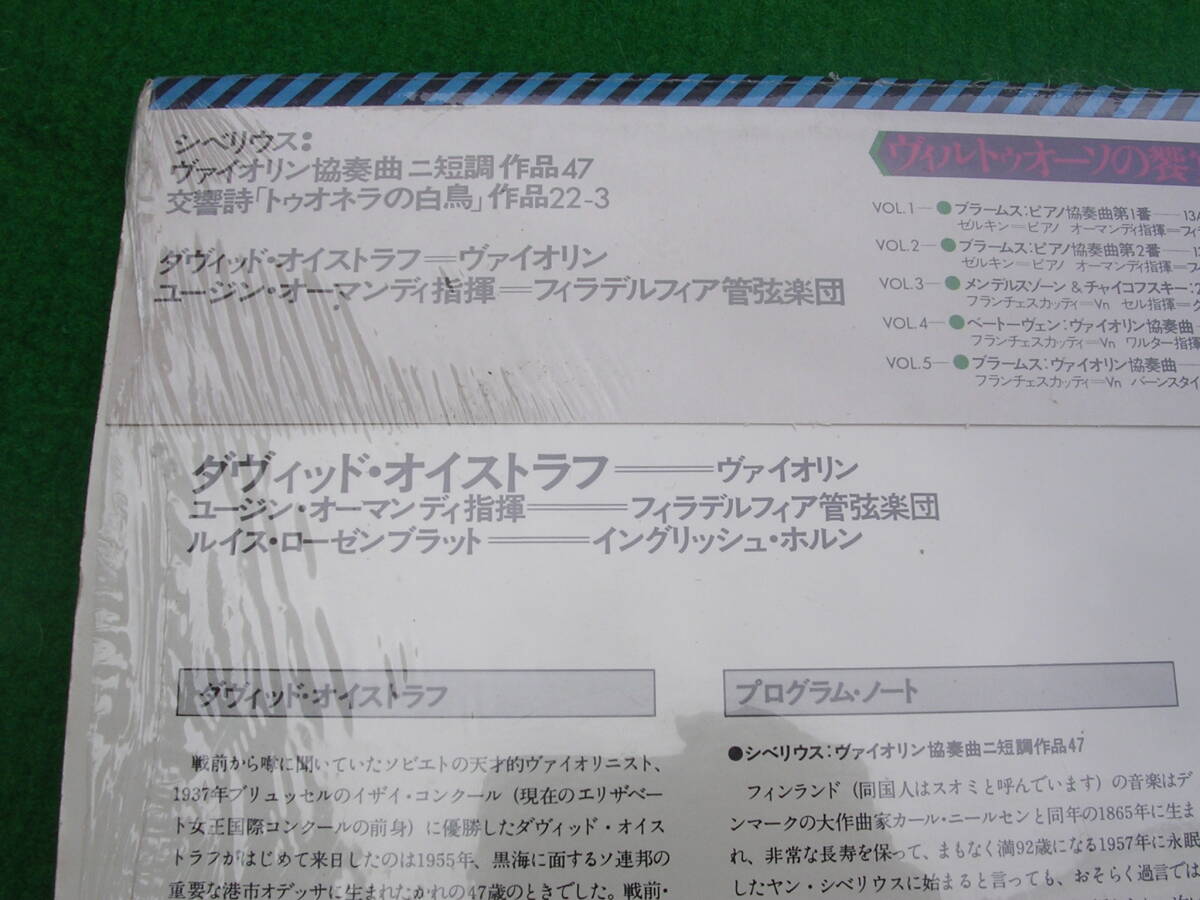 シベリウス:
ヴァイオリン協奏曲 ニ短調 作品47
交響詩「トゥオネラの白鳥」作品22-3
ダヴィッド・オイストラフ=ヴァイオリン
ユージン・オーマンディ指揮=フィラデルフィア管弦楽団
ヴィルトゥオーソの饗
VOL.1─●ブラームス:ピアノ協奏曲第1番─13A
ゼルキン=ピアノ オーマンディ指揮=フィラ
VOL.2─●ブラームス:ピアノ協奏曲第2番─1
ゼルキン=ピアノ オーマンディ指揮=フ
VOL.3─●メンデルスゾーン&チャイコフスキー:
フランチェスカッティ=Vn セル指揮=
VOL.4─●ベートーヴェン:ヴァイオリン協奏曲─
フランチェスカッティ=Vn ワルター指揮
VOL.5─●ブラームス:ヴァイオリン協奏曲─
フランチェスカッティ=Vn バーンスタイ
ダヴィッド・オイストラフ══ヴァイオリン
ユージン・オーマンディ指揮══フィラデルフィア管弦楽団
ルイス・ローゼンブラット══イングリッシュ・ホルン
ダヴィッド・オイストラフ
戦前から噂に聞いていたソビエトの天才的ヴァイオリニスト、
1937年ブリュッセルのイザイ・コンクール(現在のエリザベー
ト女王国際コンクールの前身)に優勝したダヴィッド・オイス
トラフがはじめて来日したのは1955年、黒海に面するソ連邦の
重要な港市オデッサに生まれたかれの47歳のときでした。戦前・
プログラム・ノート
●シベリウス:ヴァイオリン協奏曲ニ短調作品47
フィンランド(同国人はスオミと呼んでいます)の音楽はデ
ンマークの大作曲家カール・ニールセンと同年の1865年に生ま
れ、非常な長寿を保って、まもなく満92歳になる1957年に永眠
したヤン・シベリウスに始まると言っても、おそらく過言では